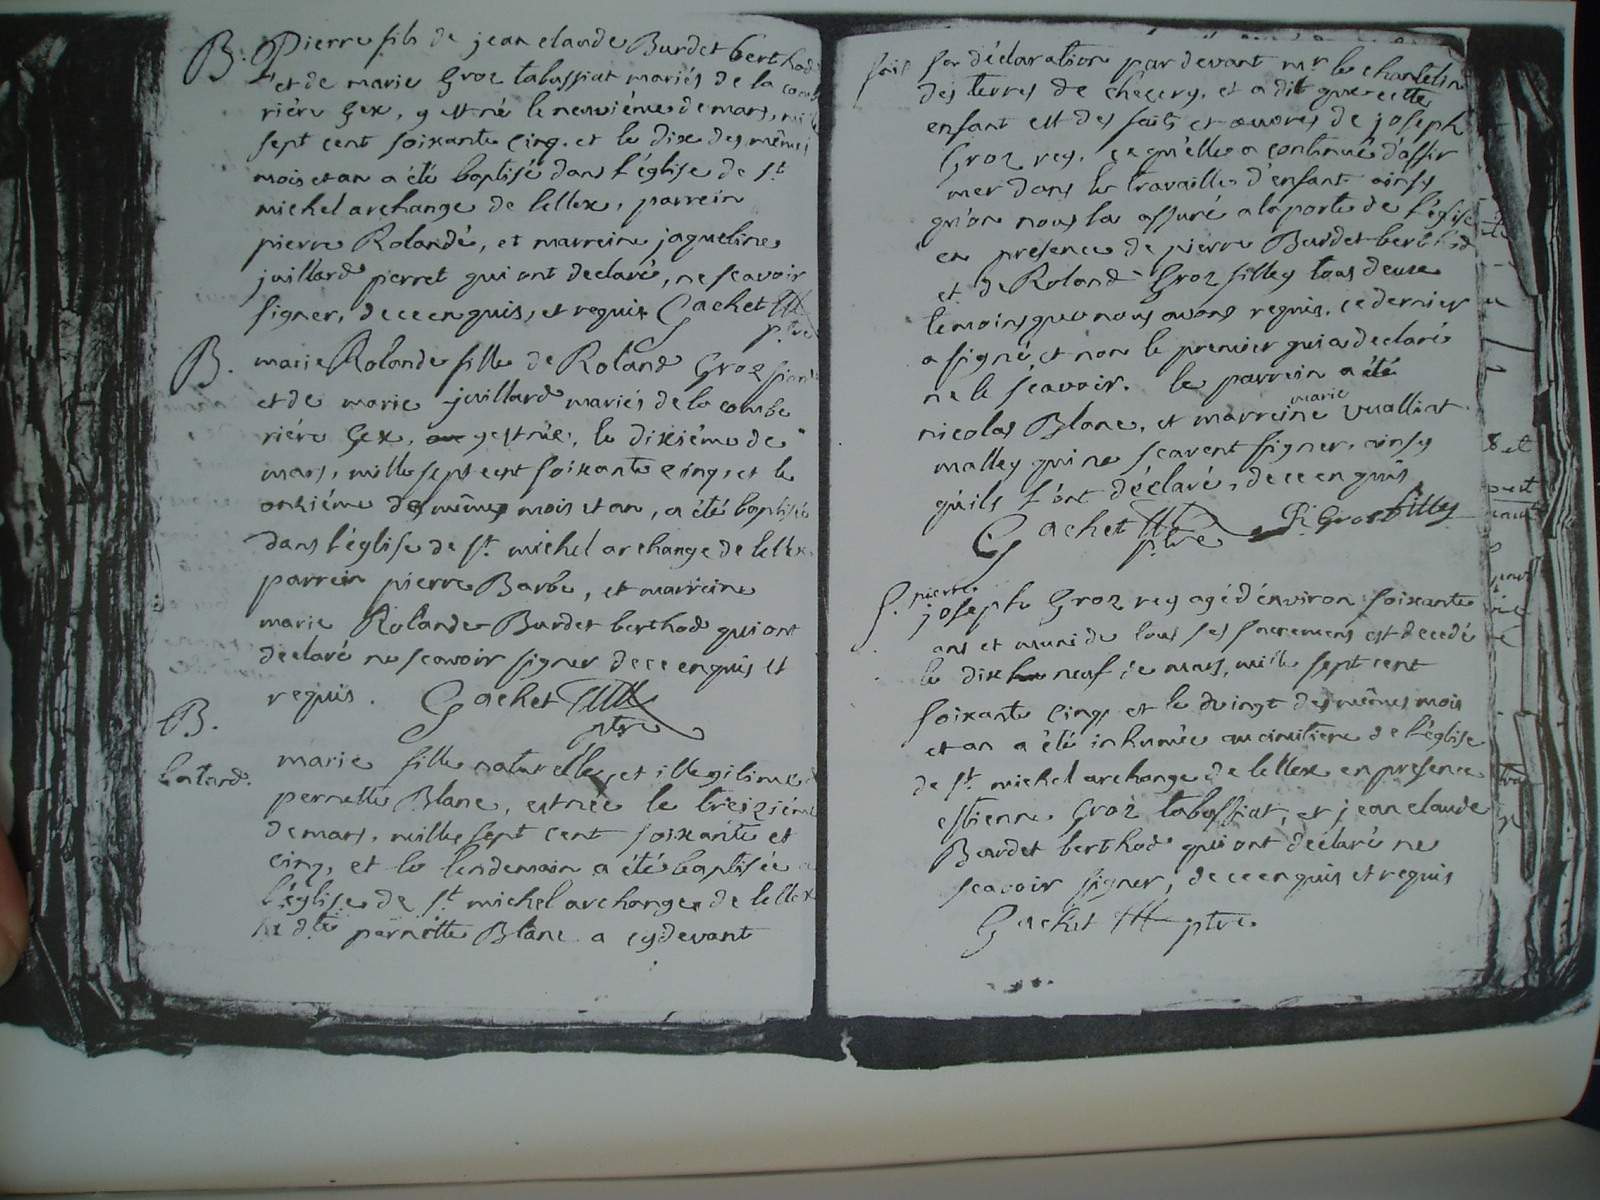 B. Pierre fils de jean claude Burdet berthod
et de marie Groz tabassiat mariés de la comb
riére Gex, y est né le neuviéme de mars, mil
sept cent soixante cinq. et le dix des mêmes
mois et an a été baptisé dans l'église de St
michel archange de lellex, parrein
pierre Rolandé, et marreine jaqueline
juillard pierret qui ont declaré, ne scavoir
signer, de ce enquis, et requis Gachet
ptre
B. marie Rolande fille de Roland Groz
et de marie juillard mariés de la combe
riére Gex, y est née, le dixiéme de
mars, mille sept cent soixante cinq, et le
onziéme des mêmes mois et an, a été baptisée
dans l'église de St michel archange de lellex
parrein pierre Barbe, et marreine
marie Rolande Burdet berthod qui ont
declaré ne scavoir signer de ce enquis et
requis. Gachet
ptre
B.
batard.
marie fille naturelle, et illegitime d
pernette Blanc, est née le treiziéme
de mars, mille sept cent soixante et
cinq, et le lendemain a été baptisée a
l'église de St michel archange de lellex
la dte pernette Blanc a cy devant
fait sa déclaration par devant mr le chatelain
des terres de chezery, et a dit que cette
enfant est des faits et œuvres de joseph
Groz rey, ce qu'elle a continué d'affir
mer dans le travaille d'enfant ainsy
qu'on nous la assuré a la porte de l'église
en presence de pierre Burdet berthod
et de Roland Groz filley tous deux
temoins que nous avons requis, ce dernier
a signé et non le premier qui a declaré
ne le scavoir. le parrein a été
nicolas Blanc, et marreine marie vualliat
malley qui ne scavent signer, ainsy
qu'ils l'ont déclaré, de ce enquis
Gachet ptre R. Gros filley
S. pierre
joseph Groz rey agé d'environ soixante
ans et muni de tous ses sacremens est decedé
le dix neuf de mars, mille sept cent
soixante cinq, et le vingt des mêmes mois
et an a été inhumée au cimitiere de l'église
de St michel archange de lellex en presence
estienne Groz tabassiat, et jean claude
Burdet berthod qui ont declaré ne
scavoir signer, de ce enquis et requis
Gachet ptre